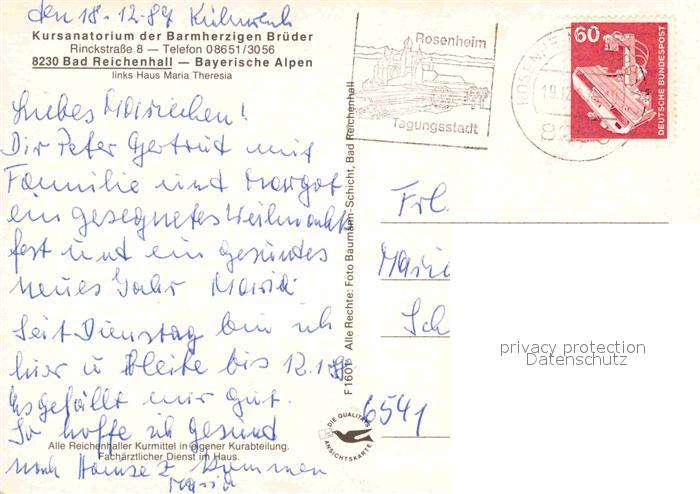 den 18.12.87
Kursanatorium der Barmherzigen Brüder
Rinckstraße 8 — Telefon 08651/3056
8230 Bad Reichenhall — Bayerische Alpen
links Haus Maria Theresia
Liebes Mariechen!
Dir Peter Gertrut mit
Familie und Margot
ein gesegnetes Weihnachts
fest und ein gesundes
neues Jahr Maria
Seit Dienstag bin ich
hier u bleibe bis 12.1.88
Es gefällt mir gut.
So hoffe ich gesund
nach Hause z kommen
Maria
Alle Reichenhaller Kurmittel in eigener Kurabteilung.
Fachärztlicher Dienst im Haus.
F 1601 Alle Rechte: Foto Baumann-Schicht, Bad Reichenhall
DIE QUALITÄTS
ANSICHTSKARTE
Rosenheim
Tagungsstadt
60
DEUTSCHE BUNDESPOST
Frl.
Marie
Sch
6541
privacy protection
Datenschutz